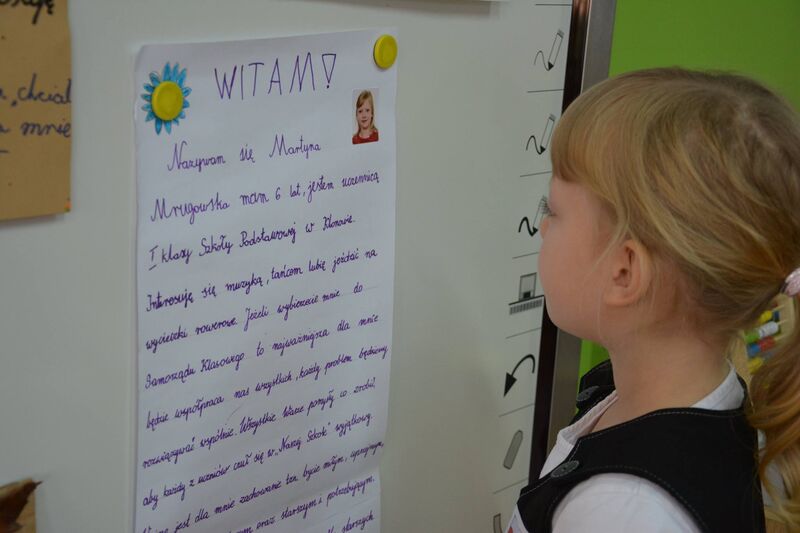 chciał
mnie
WITAM!
Nazywam się Martyna
Mrugowska mam 6 lat, jestem uczennicą
I klasy Szkoły Podstawowej w Klonowie.
Interesuję się muzyką, tańcem lubię jeździć na
wycieczki rowerowe. Jeżeli wybierzecie mnie do
Samorządu Klasowego to najważniejsza dla mnie
będzie współpraca nas wszystkich, każdy problem będziemy
rozwiązywać wspólnie. Wszystkie Wasze pomysły co zrobić,
aby każdy z uczniów czuł się w „Naszej Szkole" wyjątkowy.
jest dla mnie zachowanie tzn. bycie miłym, uprzejmym,
oraz starszym i potrzebującym.
starszych